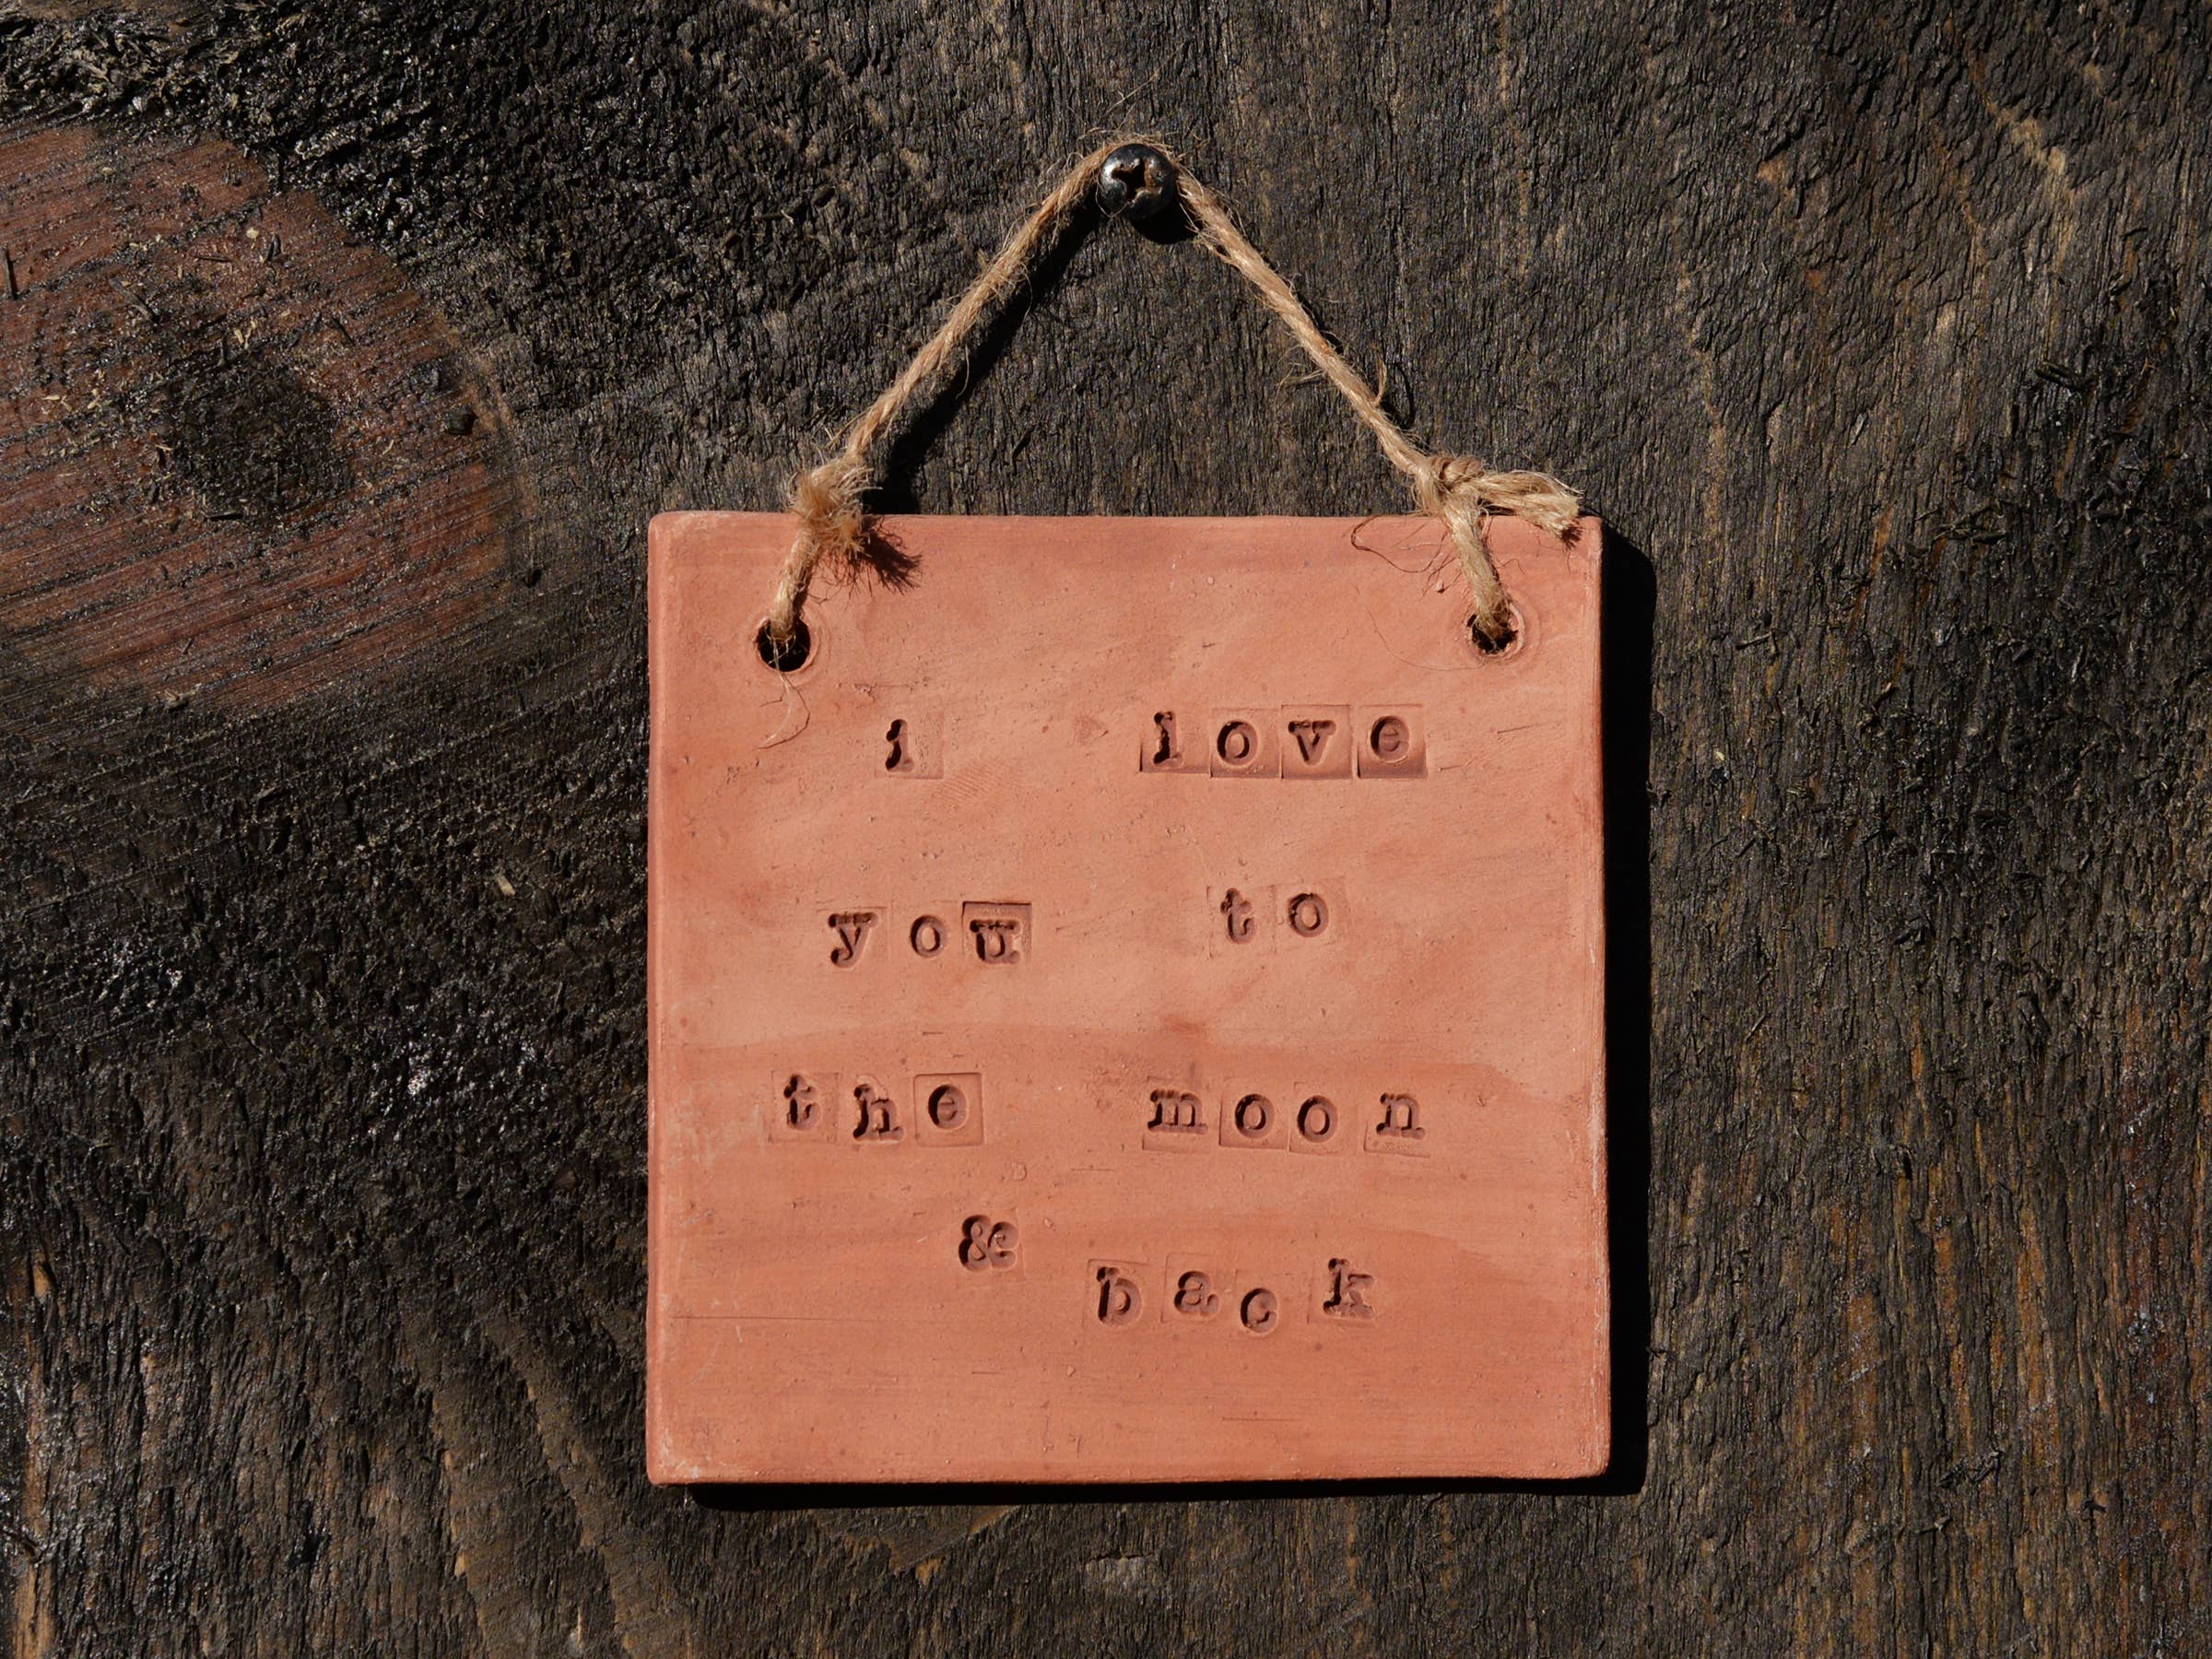 i love
you to
the moon
& back